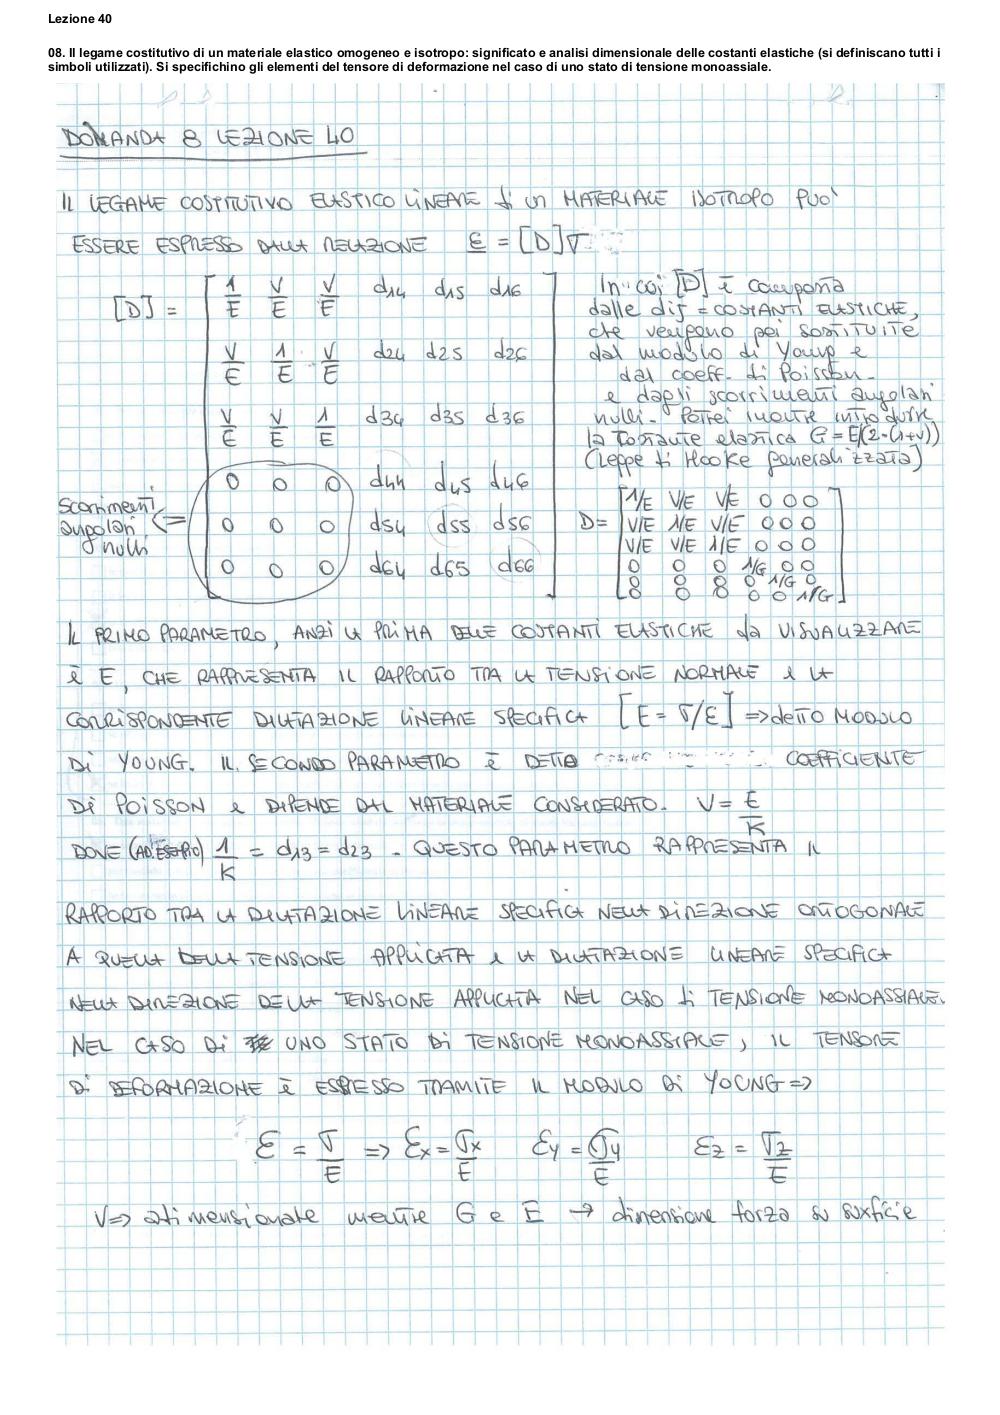 Lezione 40
08. Il legame costitutivo di un materiale elastico omogeneo e isotropo: significato e analisi dimensionale delle costanti elastiche (si definiscano tutti i
simboli utilizzati). Si specifichino gli elementi del tensore di deformazione nel caso di uno stato di tensione monoassiale.
DOMANDA 8 LEZIONE 40
IL LEGAME COSTITUTIVO ELASTICO LINEARE di un MATERIALE ISOTROPO PUO'
ESSERE ESPRESSO DALLA RELAZIONE ε = [D]σ
[D] =
1/E ν/E ν/E d14 d15 d16
ν/E 1/E ν/E d24 d25 d26
ν/E ν/E 1/E d34 d35 d36
0 0 0 d44 d45 d46
0 0 0 d54 d55 d56
0 0 0 d64 d65 d66
scorrimenti
angolari <=
nulli
In cui [D] è composta
dalle dij = COSTANTI ELASTICHE,
che vengono poi SOSTITUITE
dal modulo di Young e
dal coeff. di Poisson
e dagli scorrimenti angolari
nulli. Potrei inoltre introdurre
la costante elastica G = E/(2·(1+ν))
(legge di Hooke generalizzata)
D=
1/E ν/E ν/E 0 0 0
ν/E 1/E ν/E 0 0 0
ν/E ν/E 1/E 0 0 0
0 0 0 1/G 0 0
0 0 0 0 1/G 0
0 0 0 0 0 1/G
IL PRIMO PARAMETRO, ANZI LA PRIMA DELLE COSTANTI ELASTICHE da VISUALIZZARE
è E, CHE RAPPRESENTA IL RAPPORTO TRA LA TENSIONE NORMALE e LA
CORRISPONDENTE DILATAZIONE LINEARE SPECIFICA [E = σ/ε] => detto MODULO
DI YOUNG. IL SECONDO PARAMETRO è DETTO COEFFICIENTE
DI POISSON e DIPENDE DAL MATERIALE CONSIDERATO. ν = E/K
DOVE (AD.ESEMPIO) 1/K = d13 = d23 - QUESTO PARAMETRO RAPPRESENTA IL
RAPPORTO TRA LA DILATAZIONE LINEARE SPECIFICA NELLA DIREZIONE ORTOGONALE
A QUELLA DELLA TENSIONE APPLICATA e LA DILATAZIONE LINEARE SPECIFICA
NELLA DIREZIONE DELLA TENSIONE APPLICATA NEL CASO di TENSIONE MONOASSIALE.
NEL CASO DI UNO STATO DI TENSIONE MONOASSIALE, IL TENSORE
DI DEFORMAZIONE è ESPRESSO TRAMITE IL MODULO DI YOUNG =>
ε = σ/E => εx = σx/E εy = σy/E εz = σz/E
ν => adimensionale mentre G e E → dimensione forza su suxficie